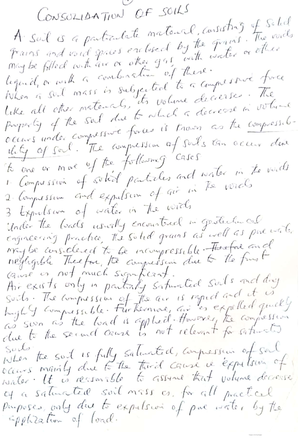 CONSOLIDATION OF SOILS
A soil is a particulate material, consisting of solid
grains and void spaces enclosed by the grains. The voids
may be filled with air or other gas, with water or other
liquid, or with a combination of these.
When a soil mass is subjected to a compressive force
like all other materials, its volume decreases. The
property of the soil due to which a decrease in volume
occurs under compressive forces is known as the compressib-
ility of soil. The compression of soils can occur due
to one or more of the following cases
1 Compression of solid particles and water in the voids
2 Compression and expulsion of air in the voids
3 Expulsion of water in the voids
Under the loads usually encountered in geotechnical
engineering practice, the solid grains as well as pore water
may be considered to be incompressible Therefore and
negligible Therefore, the compression due to the first
cause is not much significant.
Air exists only in partially saturated soils and dry
soils. The compression of the air is rapid and it is
highly compressible. Furthermore, air is expelled quickly
as soon as the load is applied. However, the compression
due to the second cause is not relevant for saturated
soils.
When the soil is fully saturated, compression of soil
occurs mainly due to the third cause ie expulsion of
water. It is reasonable to assume that volume decrease
of a saturated soil mass is, for all practical
purposes, only due to expulsion of pore water by the
application of load.